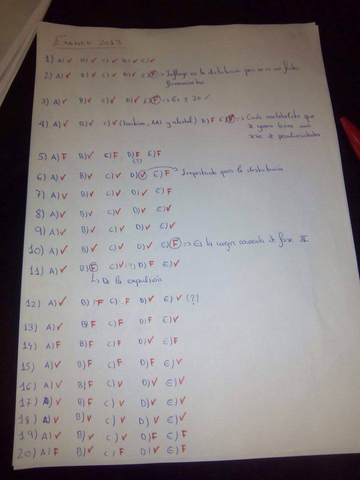 EXAMEN 2013
1) A) V B) V C) V D) V E) V
2) A) V B) V C) V D) V E) F => Influye en la distribución pero no es un factor
3) A) V B) V C) V D) V E) F => 60 ± 20 %
4) A) V B) V C) V ( , AAS y alcohol) D) F E) V => Cada metabolito que
se genera tiene una
serie de peculiaridades
5) A) F B) V C) F D) F E) F
(?)
6) A) V B) V C) V D) V E) F Importante para la distribución
7) A) V B) V C) V D) V E) F
8) A) V B) V C) V D) V E) V
9) A) V B) V C) V D) V E) V
10) A) V B) V C) V D) V E) F => Es la conjugación de fase II
11) A) V B) F C) V (?) D) F E) V
De la expulsión
12) A) V B) F C) F D) V E) V (?)
13) A) V B) F C) F D) V E) V
14) A) F B) F C) F D) V E) F
15) A) V B) F C) F D) F E) V
16) A) V B) F C) V D) V E) V
17) A) V B) F C) V D) V E) V
18) A) V B) V C) V D) V E) V
19) A) V B) V C) V D) F E) F
20) A) F B) V C) F D) V E) F